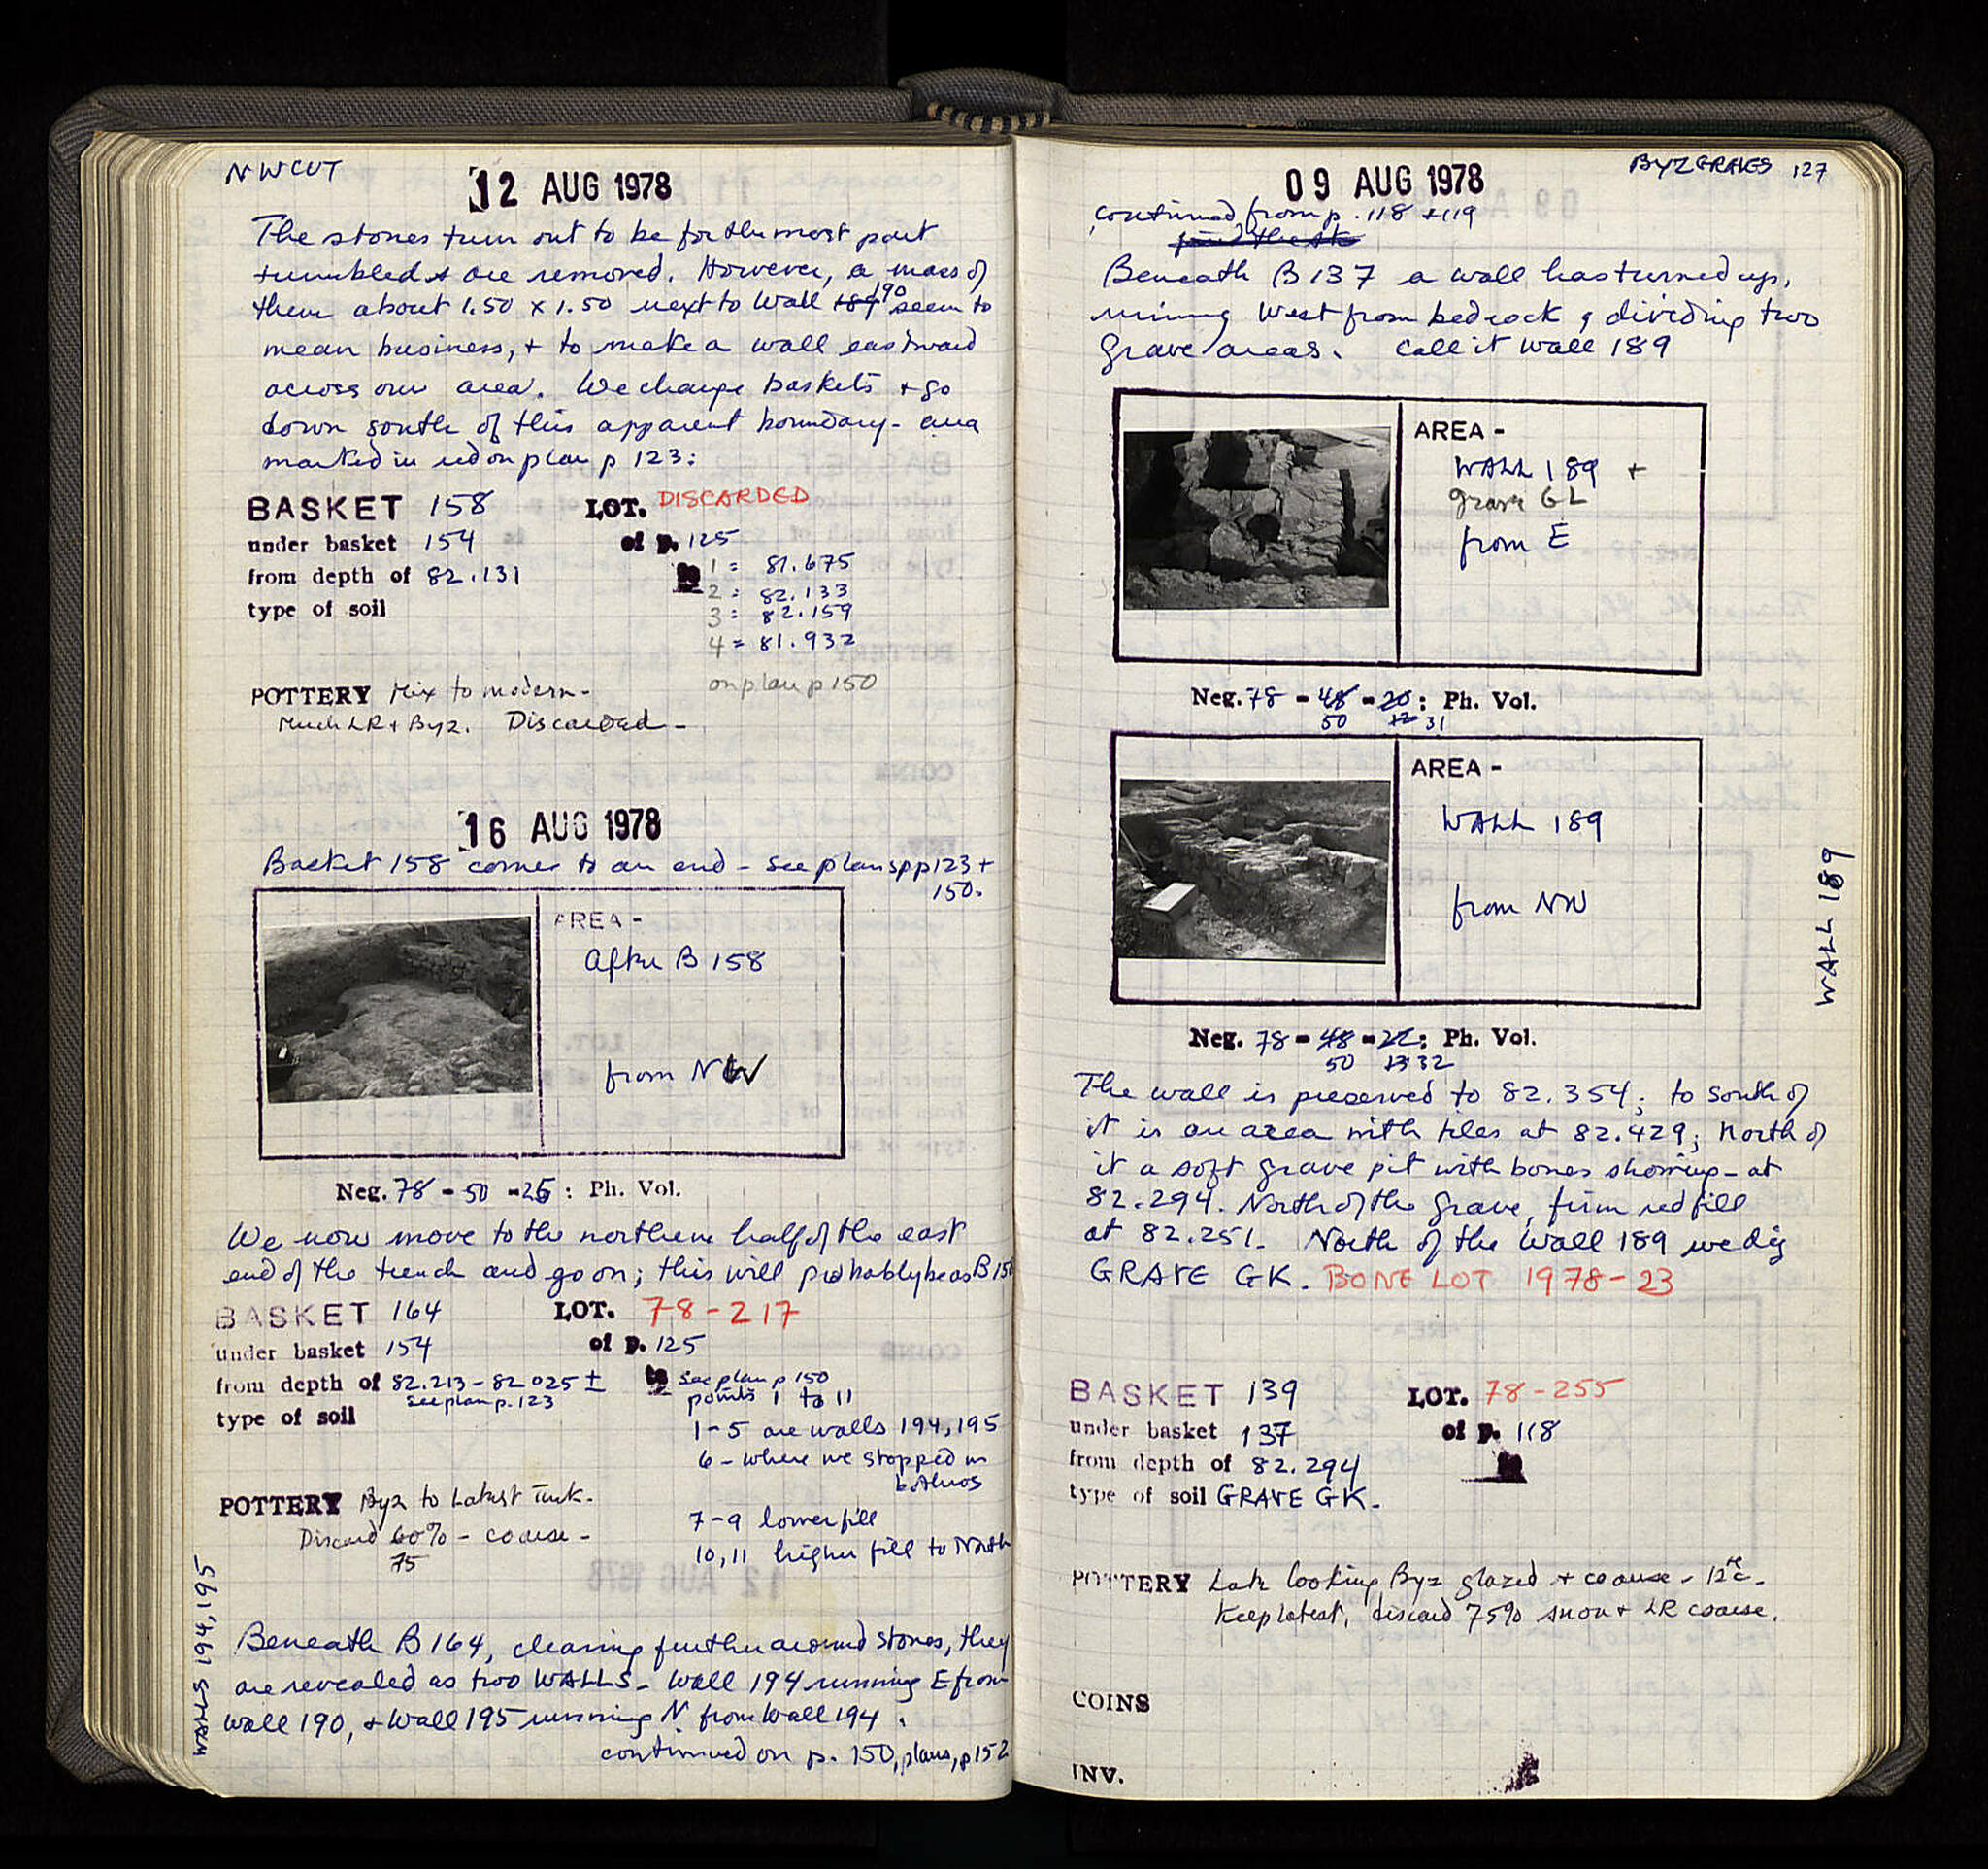 NWCUT
12 AUG 1978
The stones turn out to be for the most part
tumbled & are removed. However, a mass of
them about 1.50 x 1.50 next to Wall 189 190 seem to
mean business, + to make a wall eastward
across our area. We change baskets + go
down south of this apparent boundary - area
marked in red on plan p 123:
BASKET 158 LOT. DISCARDED
under basket 154 of p. 125
from depth of 82.131 to 1 = 81.675
2 = 82.133
type of soil 3 = 82.159
4 = 81.932
POTTERY Mix to modern - on plan p 150
Much LR + Byz. Discarded -
16 AUG 1978
Basket 158 comes to an end - see plans pp 123 +
150.
AREA -
After B 158
from NW
Neg. 78 - 50 - 26 : Ph. Vol.
We now move to the northern half of the east
end of the trench and go on; this will probably be as B 158
BASKET 164 LOT. 78-217
under basket 154 of p. 125
from depth of 82.213 - 82.025 ± to see plan p 150
see plan p. 123 points 1 to 11
type of soil
1-5 are walls 194, 195
6 - where we stopped in
bothros
POTTERY Byz to Latest Turk.
7-9 lower fill
Discard 60% - coarse -
75
10, 11 higher fill to North
WALLS 194, 195
Beneath B 164, clearing further around stones, they
are revealed as two WALLS - Wall 194 running E from
Wall 190, + Wall 195 running N. from Wall 194.
continued on p. 150, plans, p 152
BYZ GRAVES 127
09 AUG 1978
continued from p. 118 + 119
Beneath B 137 a wall has turned up,
running West from bedrock & dividing two
grave areas. Call it Wall 189
AREA -
WALL 189 +
grave GL
from E
Neg. 78 - 48 - 20 : Ph. Vol.
50 12 31
AREA -
WALL 189
from NW
Neg. 78 - 48 - 22 : Ph. Vol.
50 13 32
WALL 189
The wall is preserved to 82.354; to south of
it is an area with tiles at 82.429; North of
it a soft grave pit with bones showing - at
82.294. North of the grave, firm red fill
at 82.251. North of the Wall 189 we dig
GRAVE GK. BONE LOT 1978-23
BASKET 139 LOT. 78-255
under basket 137 of p. 118
from depth of 82.294 to
type of soil GRAVE GK.
POTTERY Late looking Byz glazed + coarse - 12th c.
Keep latest, discard 75% LR coarse.
COINS
INV.